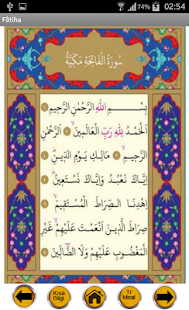 74% 02:54
Fâtiha
سُورَةُ الْفَاتِحَةِ مَكِّيَّةٌ
بِسْمِ اللّٰهِ الرَّحْمٰنِ الرَّحِيمِ
الْحَمْدُ لِلّٰهِ رَبِّ الْعَالَمِينَ الرَّحْمٰنِ
الرَّحِيمِ مَالِكِ يَوْمِ الدِّينِ
إِيَّاكَ نَعْبُدُ وَإِيَّاكَ نَسْتَعِينُ
اِهْدِنَا الصِّرَاطَ الْمُسْتَقِيمَ
صِرَاطَ الَّذِينَ اَنْعَمْتَ عَلَيْهِمْ غَيْرِ
الْمَغْضُوبِ عَلَيْهِمْ وَلَا الضَّالِّينَ
Kısa Bilgi
Tr Meal